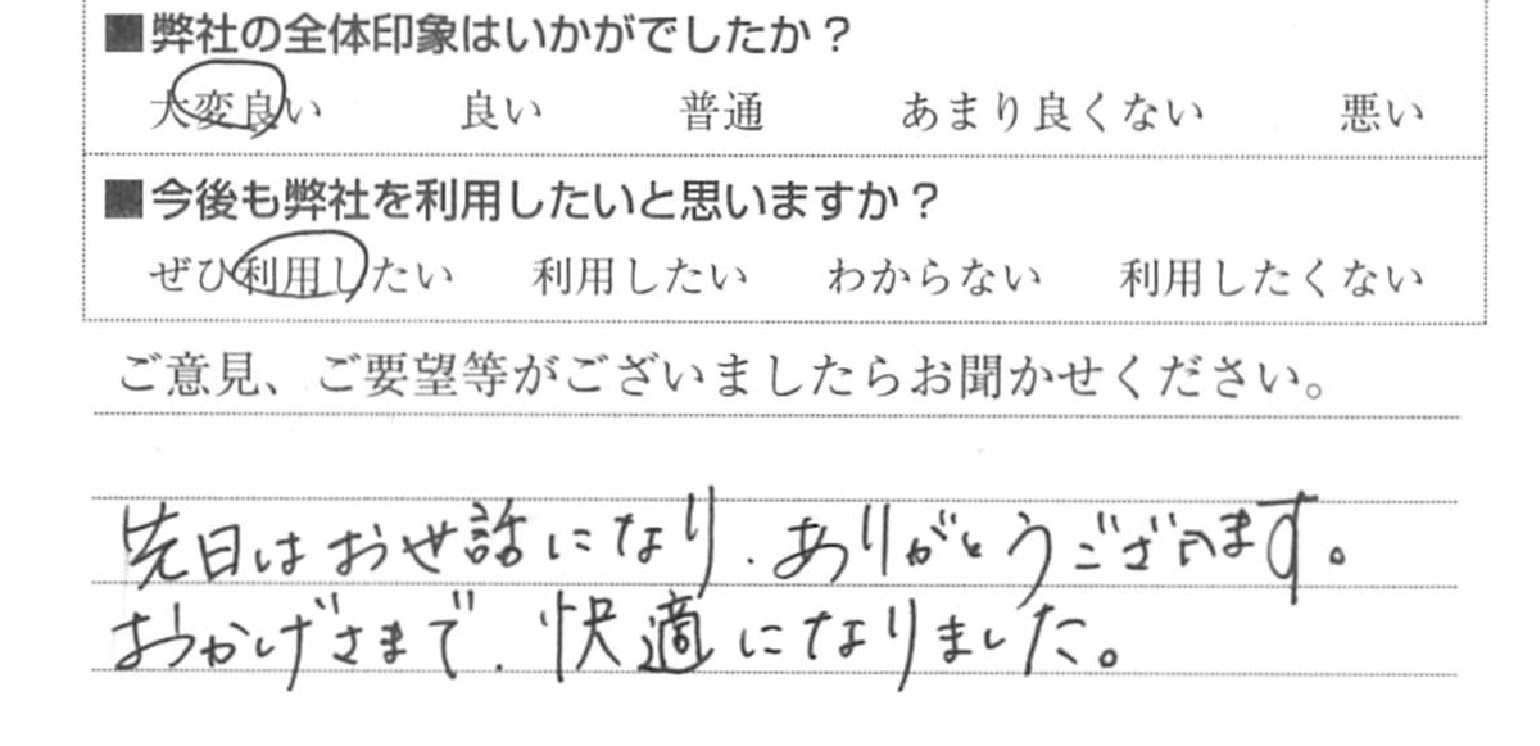 ■弊社の全体印象はいかがでしたか？
大変良い 良い 普通 あまり良くない 悪い
■今後も弊社を利用したいと思いますか？
ぜひ利用したい 利用したい わからない 利用したくない
ご意見、ご要望等がございましたらお聞かせください。
先日はお世話になり、ありがとうございます。
おかげさまで、快適になりました。